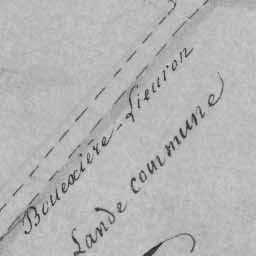 Bouexière-Lieuron
Lande commune